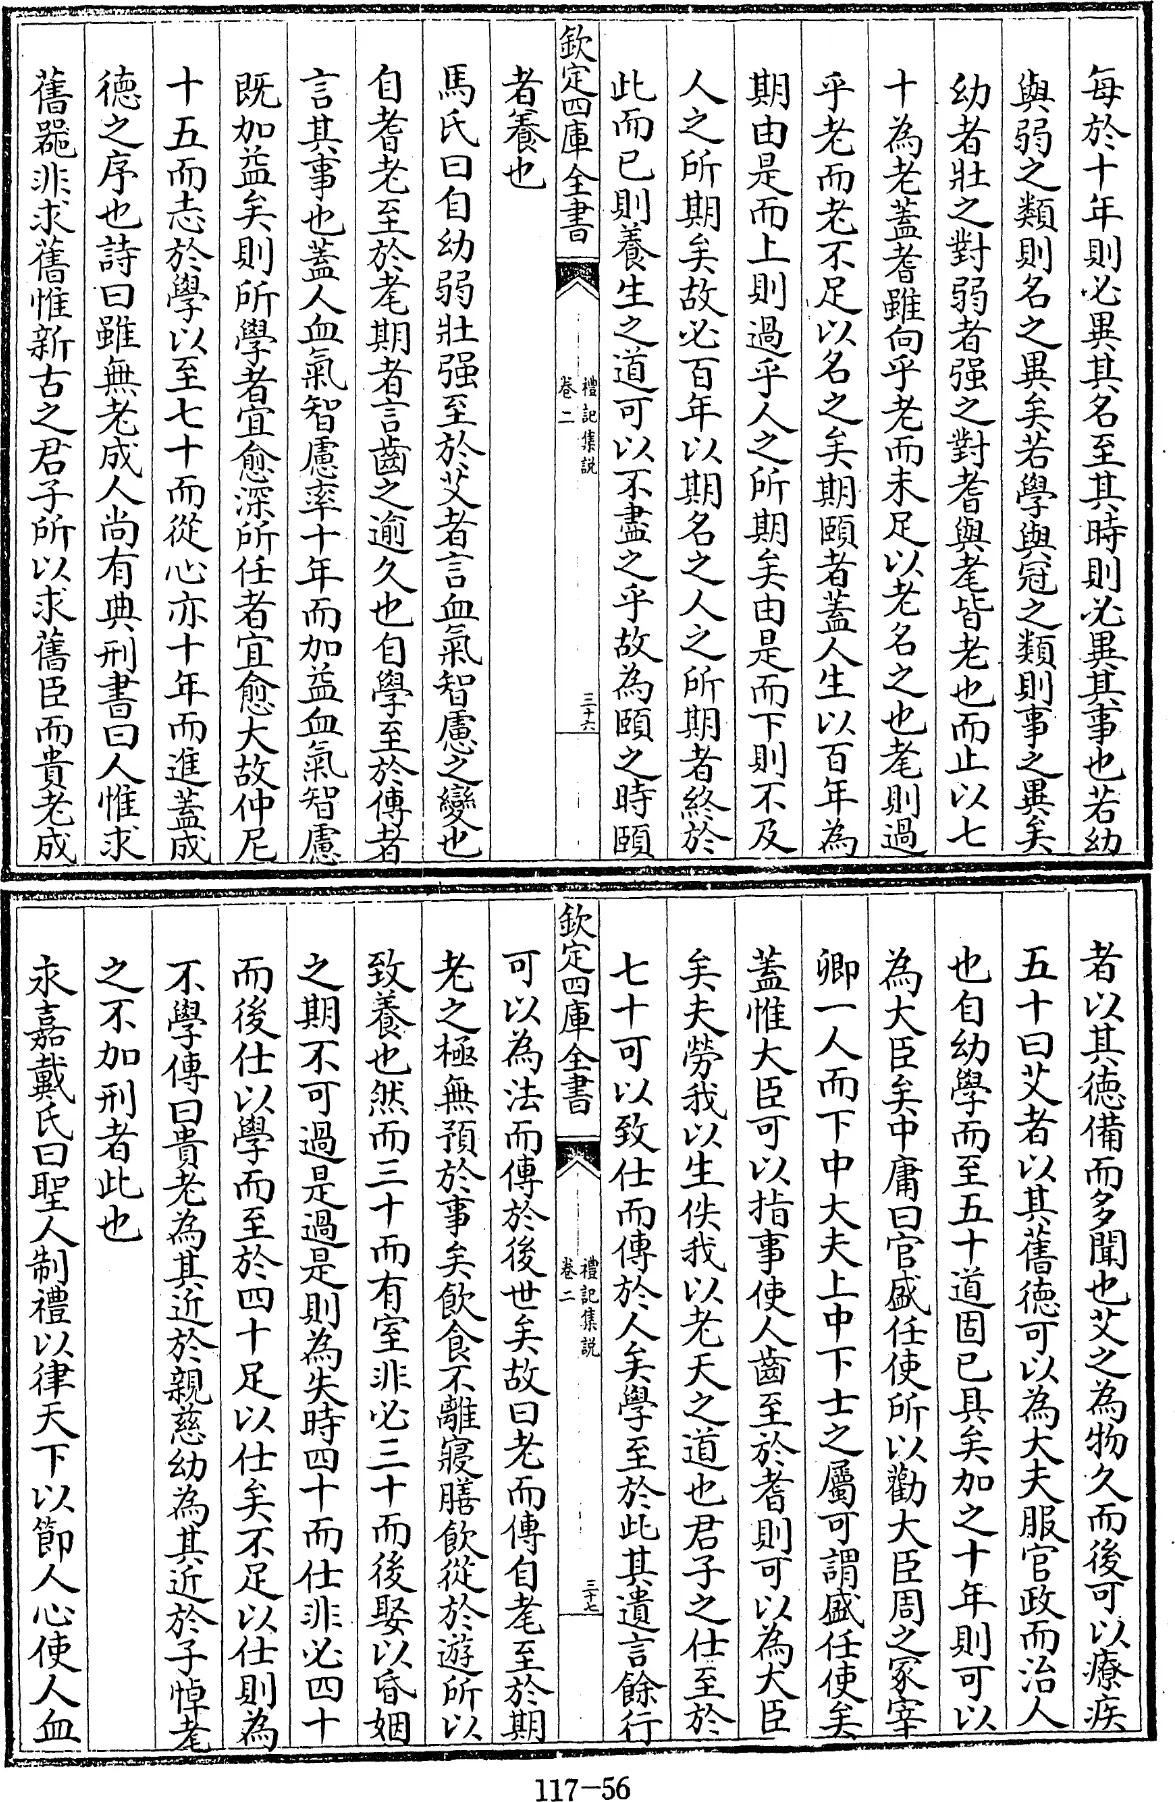 每於十年則必異其名至其時則必異其事也若幼
與弱之類則名之異矣若學與冠之類則事之異矣
幼者壯之對弱者强之對耆與耄皆老也而止以七
十為老蓋耆雖向乎老而未足以老名之也耄則過
乎老而老不足以名之矣期頤者蓋人生以百年為
期由是而上則過乎人之所期矣由是而下則不及
人之所期矣故必百年以期名之人之所期者終於
此而已則養生之道可以不盡之乎故為頤之時頤
者養也
馬氏曰自幼弱壯强至於艾者言血氣智慮之變也
自耆老至於耄期者言齒之逾久也自學至於傳者
言其事也蓋人血氣智慮率十年而加益血氣智慮
既加益矣則所學者宜愈深所任者宜愈大故仲尼
十五而志於學以至七十而從心亦十年而進蓋成
德之序也詩曰雖無老成人尚有典刑書曰人惟求
舊器非求舊惟新古之君子所以求舊臣而貴老成
欽定四庫全書
禮記集説
卷二
三十六
者以其德備而多聞也艾之為物久而後可以療疾
五十曰艾者以其舊德可以為大夫服官政而治人
也自幼學而至五十道固已具矣加之十年則可以
為大臣矣中庸曰官盛任使所以勸大臣周之冢宰
卿一人而下中大夫上中下士之屬可謂盛任使矣
蓋惟大臣可以指事使人齒至於耆則可以為大臣
矣夫勞我以生佚我以老天之道也君子之仕至於
七十可以致仕而傳於人矣學至於此其遺言餘行
欽定四庫全書
禮記集説
卷二
三十七
可以為法而傳於後世矣故曰老而傳自耄至於期
老之極無預於事矣飲食不離寢膳飲從於遊所以
致養也然而三十而有室非必三十而後娶以昏姻
之期不可過是過是則為失時四十而仕非必四十
而後仕以學而至於四十足以仕矣不足以仕則為
不學傳曰貴老為其近於親慈幼為其近於子悼耄
之不加刑者此也
永嘉戴氏曰聖人制禮以律天下以節人心使人血
117-56